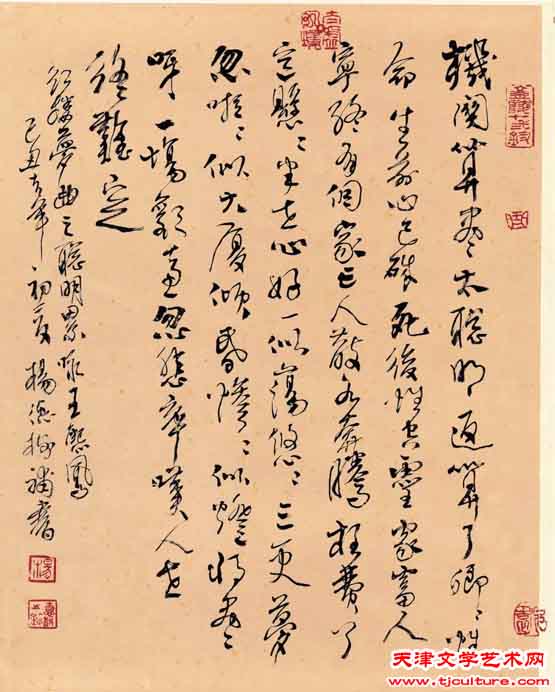 機関算盡太聰明返算了卿〻性
命生前心已碎死後性空靈家富人
寧終有個家亡人散各奔騰枉費了
意懸〻半世心好一似蕩悠〻三更夢
忽喇〻似大厦傾昏惨〻似燈将盡
呀一場歡喜忽悲辛嘆人世
終難定
紅樓夢曲之聰明累咏王熙鳳
己丑年初夏楊補書
楊
天津文学艺术网
www.tjculture.com